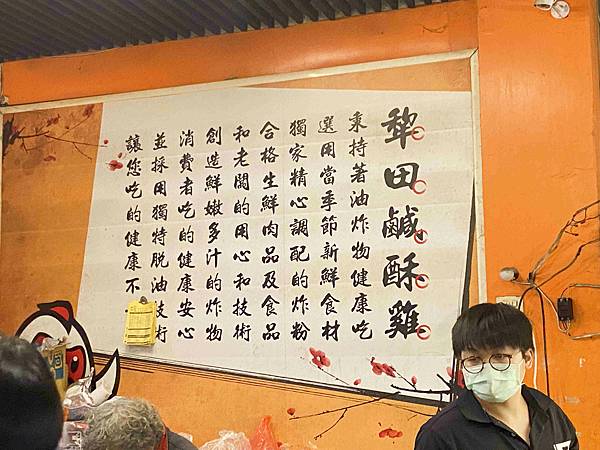 犂田鹹酥雞
秉持著油炸物健康吃
選用當季節新鮮食材
獨家精心調配的炸粉
合格生鮮肉品及食品
和老闆的用心和技術
創造鮮嫩多汁的炸物
消費者吃的健康安心
並採用獨特脫油技術
讓您吃的健康不